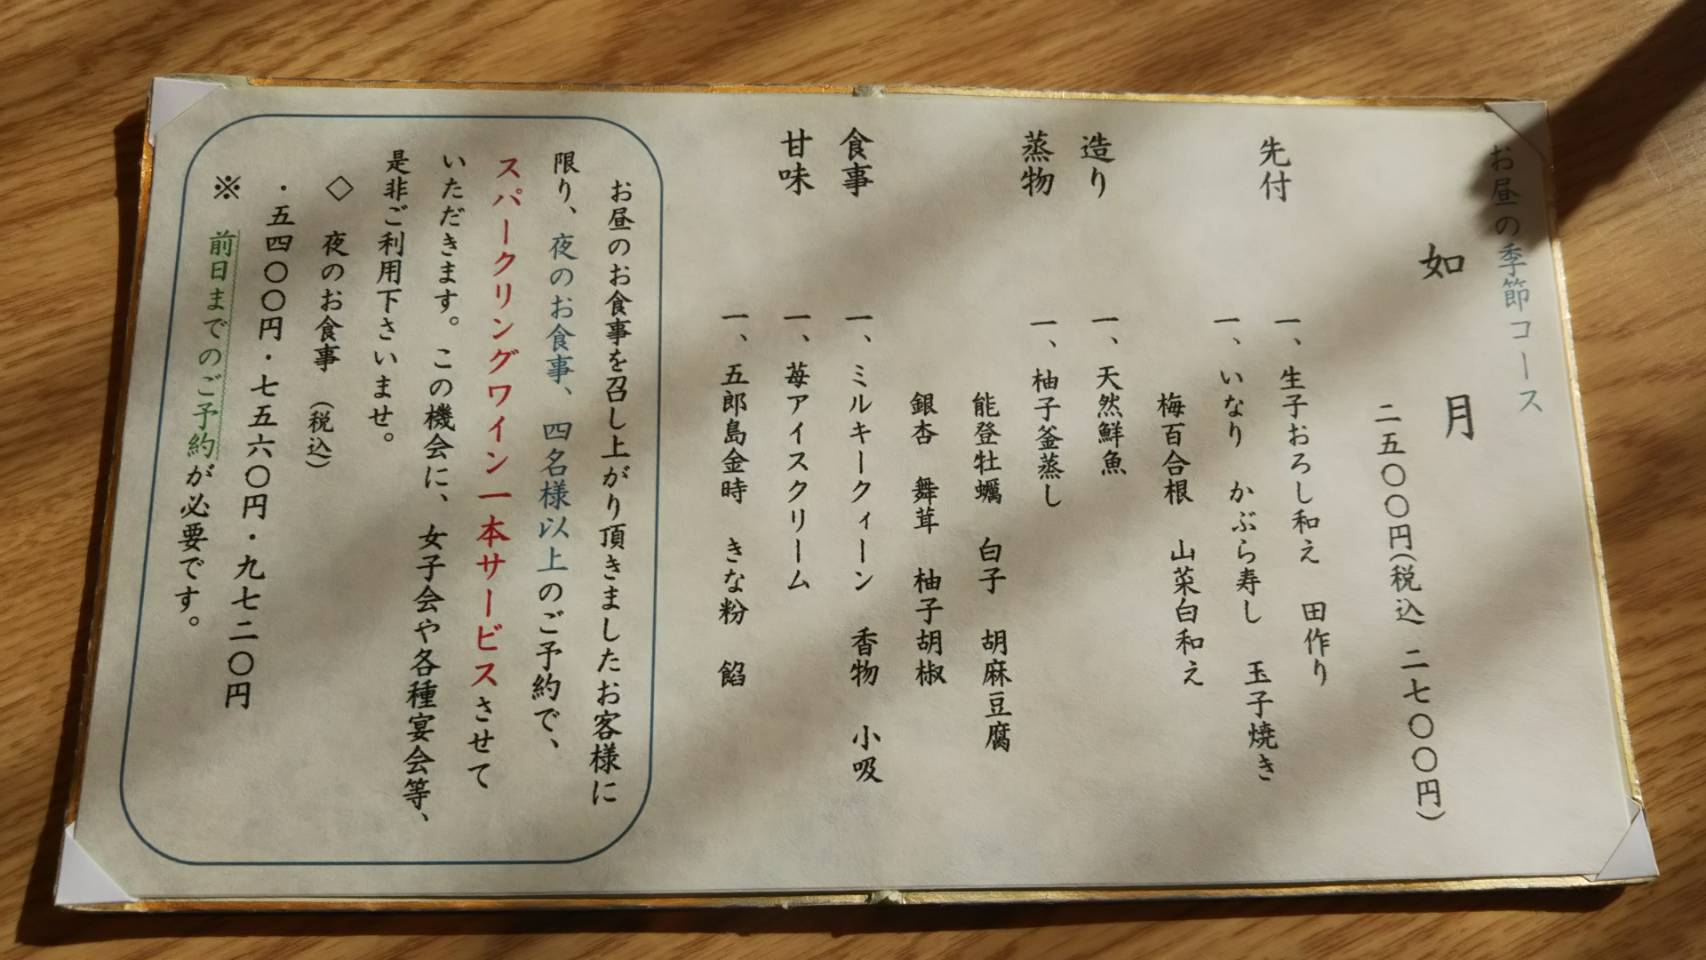 お昼の季節コース
如月
二五〇〇円(税込 二七〇〇円)
先付
一、生子おろし和え 田作り
一、いなり かぶら寿し 玉子焼き
梅百合根 山菜白和え
造り
一、天然鮮魚
蒸物
一、柚子釜蒸し
能登牡蠣 白子 胡麻豆腐
銀杏 舞茸 柚子胡椒
食事
一、ミルキークィーン 香物 小吸
甘味
一、苺アイスクリーム
一、五郎島金時 きな粉 餡
お昼のお食事を召し上がり頂きましたお客様に
限り、夜のお食事、四名様以上のご予約で、
スパークリングワイン一本サービスさせて
いただきます。この機会に、女子会や各種宴会等、
是非ご利用下さいませ。
◇ 夜のお食事 (税込)
・五四〇〇円・七五六〇円・九七二〇円
※ 前日までのご予約が必要です。